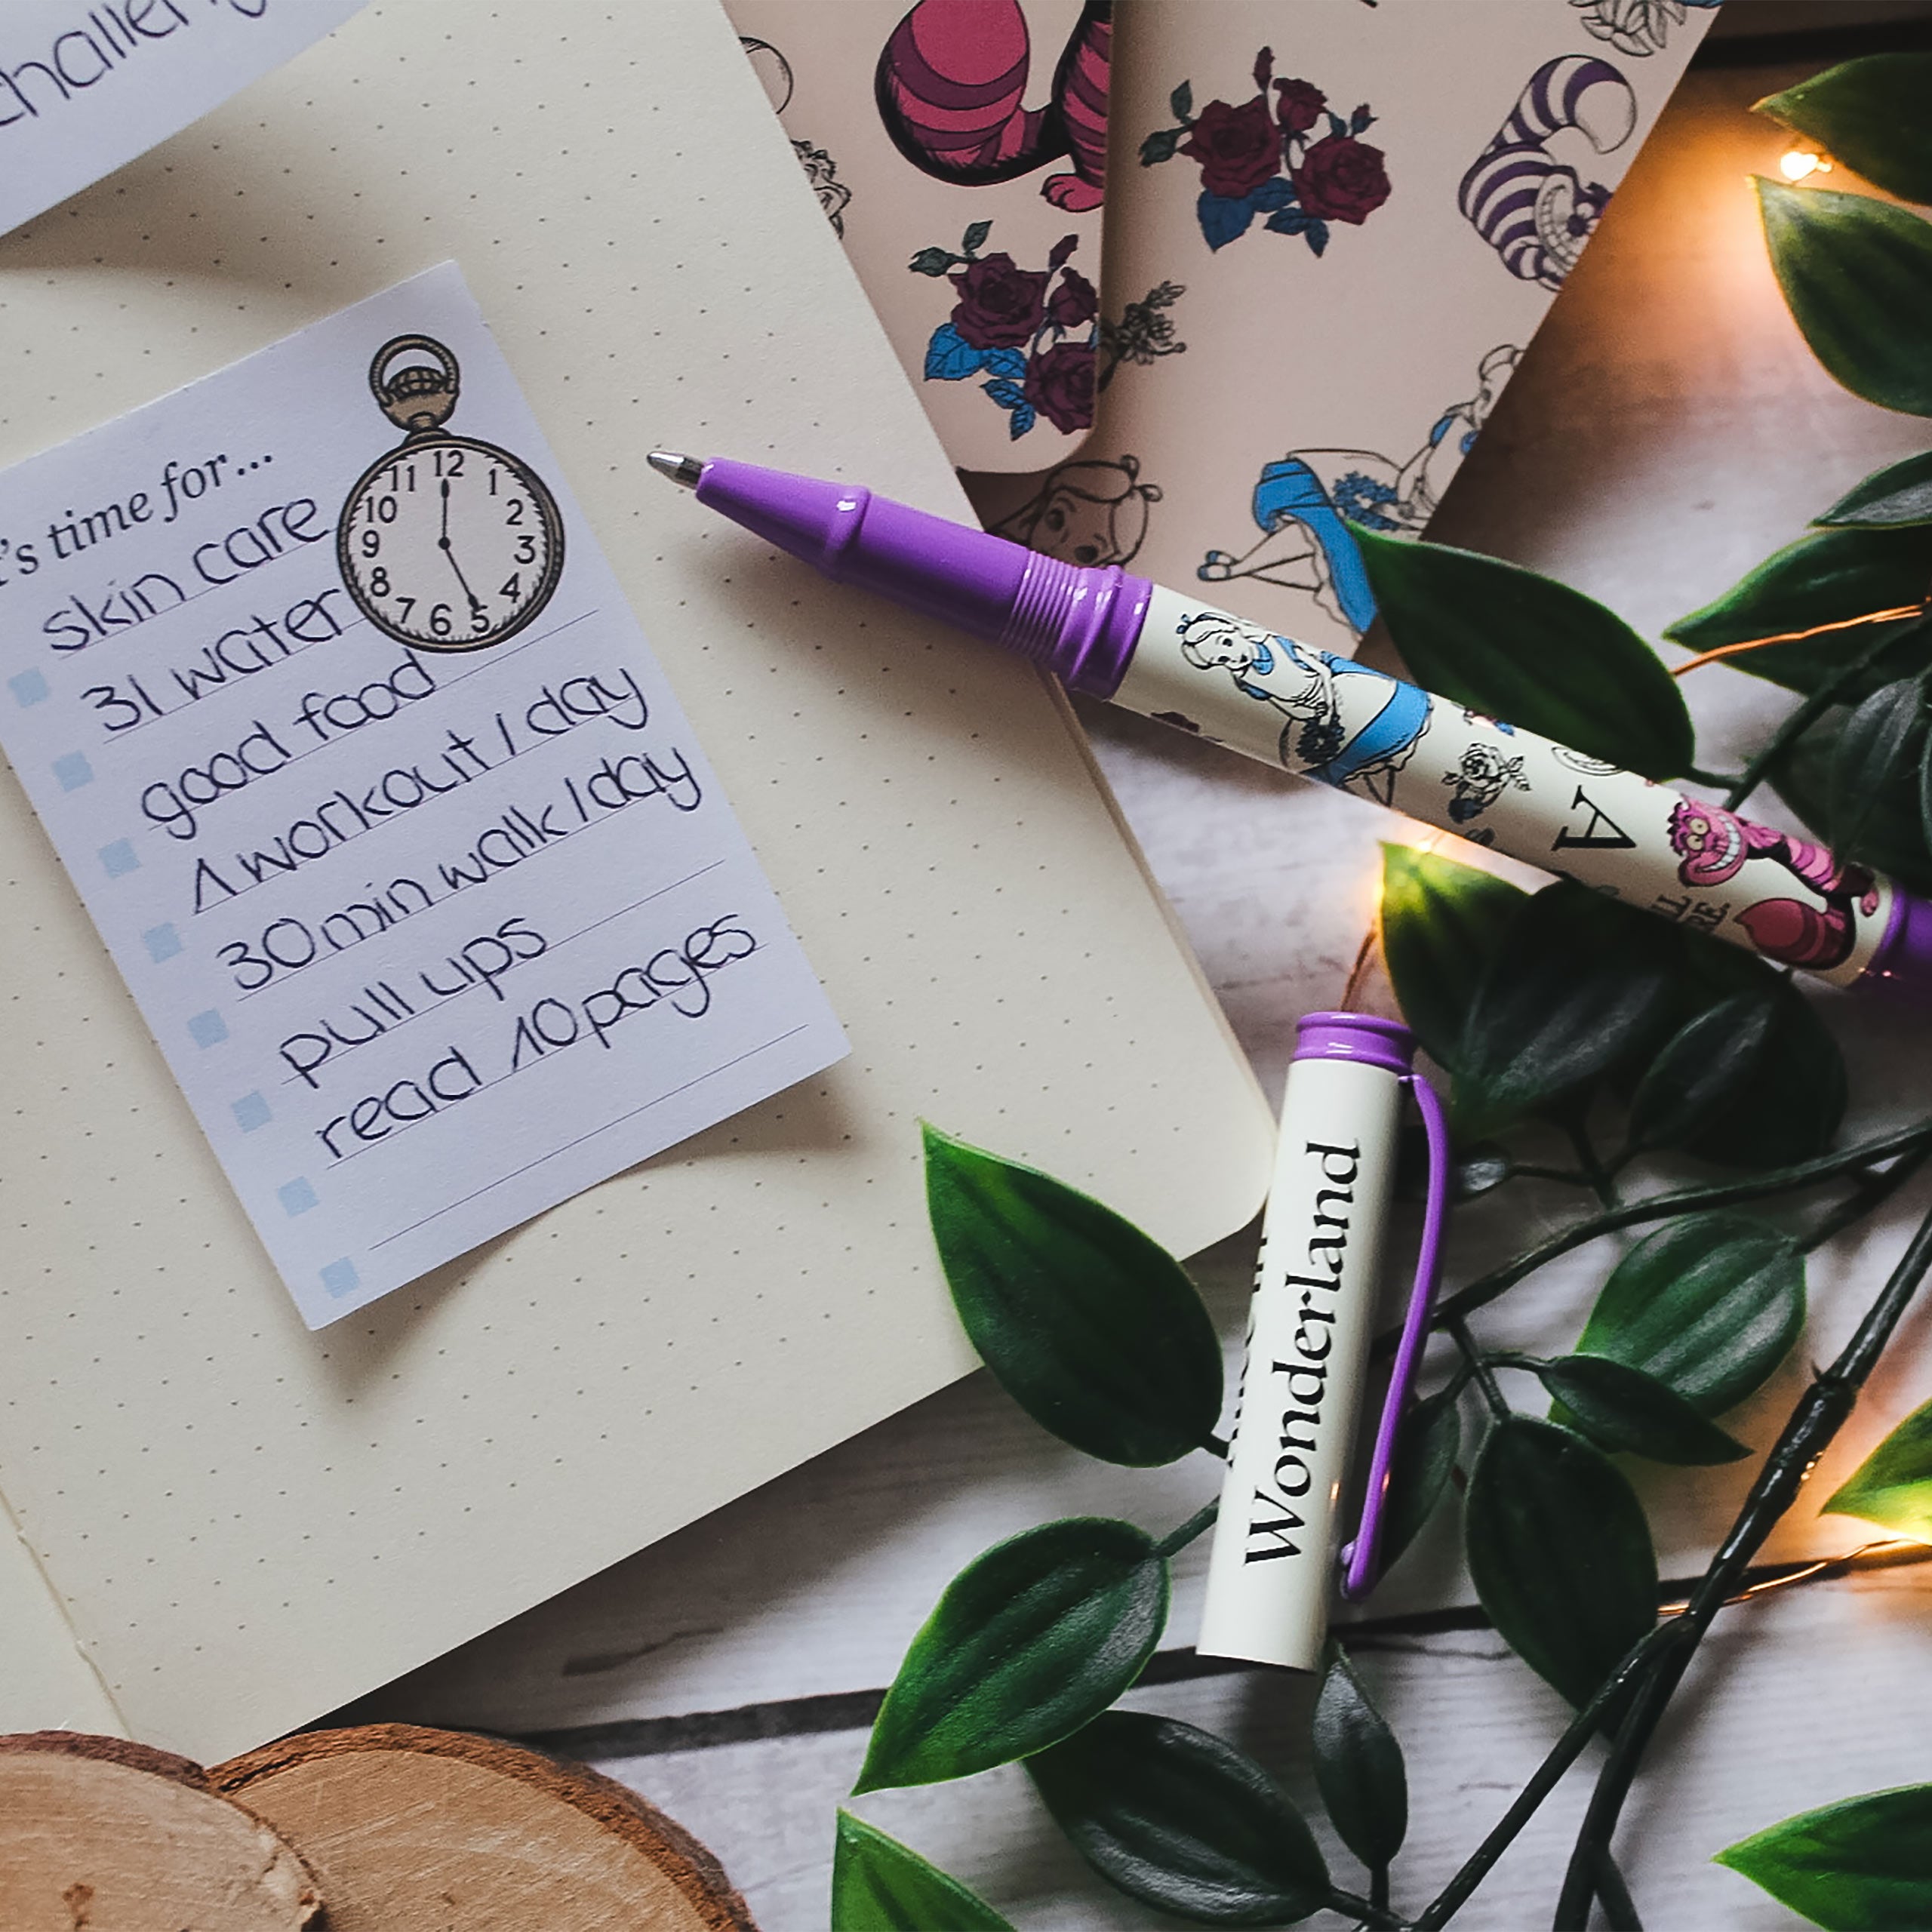 challeng
's time for...
12
11 1
10 2
9 3
8 4
7 6 5
skin care
3l water
good food
1 workout / day
30 min walk / day
pull ups
read 10 pages
A
Wonderland